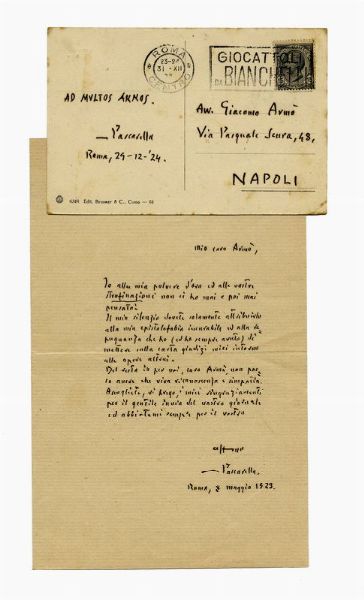 ROMA
CENTRO
31 · XII
GIOCATTOLI
DA BIANCHELLI
AD MULTOS ANNOS.
Pascarella
Roma, 29-12-'24.
Avv. Giacomo Armò
Via Pasquale Scura, 48,
NAPOLI
Edit. Brunner & C., Como
Mio caro Armò,
Io alla mia polvere d'oro ed alle vostre
non ci ho mai e poi mai
pensato!
Il mio silenzio dovete solamente attribuirlo
alla mia epistolofobia incurabile ed alla re
pugnanza che ho (ed ho sempre avuto) di
mettere sulla carta giudizi miei intorno
alle opere altrui.
Del resto io per voi, caro Armò, non pos
so avere che viva riconoscenza e simpatia.
Accogliete, vi prego, i miei ringraziamenti
per il gentile invio del vostro giornale
ed abbiatemi sempre per il vostro
aff.mo
Pascarella.
Roma, 8 maggio 1923.